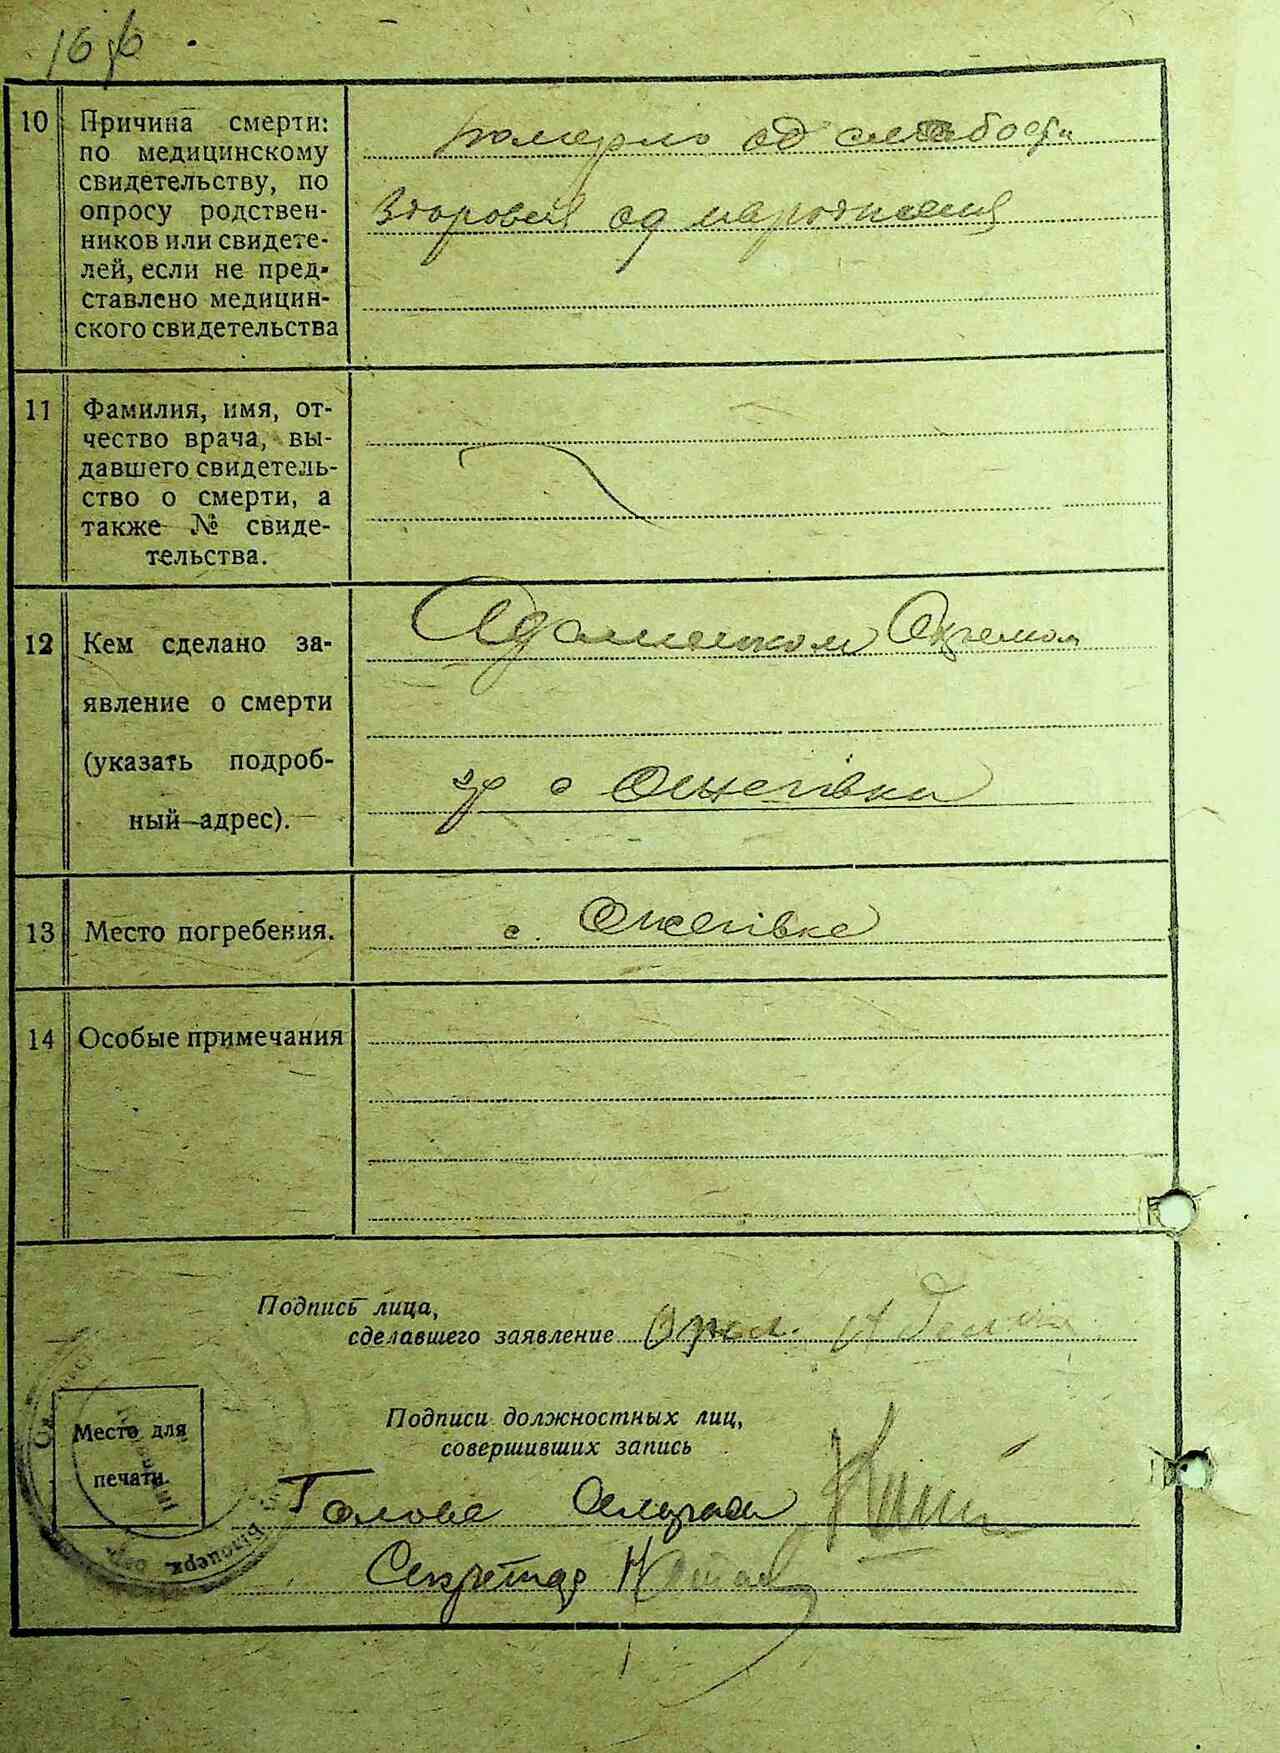 10 Причина смерти:
по медицинскому
свидетельству, по
опросу родствен-
ников или свидете-
лей, если не пред-
ставлено медицин-
ского свидетельства
померло од слабости
здоровья од народження
11 Фамилия, имя, от-
чество врача, вы-
давшего свидетель-
ство о смерти, а
также № свиде-
тельства.
12 Кем сделано за-
явление о смерти
(указать подроб-
ный адрес).
Адамчуком
гр с Ожегівки
13 Место погребения.
с. Ожегівке
14 Особые примечания
Подпись лица,
сделавшего заявление
Подписи должностных лиц,
совершивших запись
Место для
печати.
Голова Сельради
Секретар